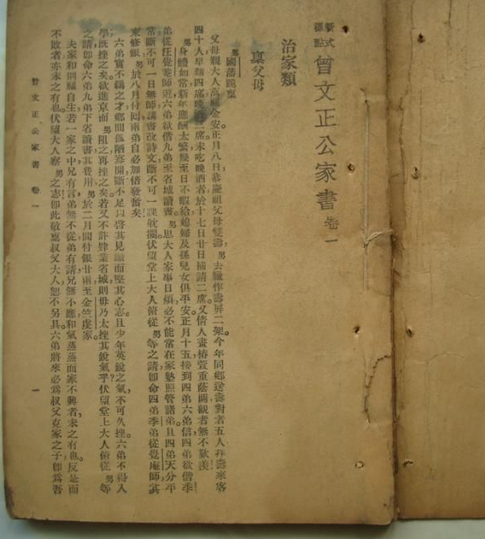 新式標點 曾文正公家書 卷一
治家類
稟父母
男國藩跪稟
父母親大人萬福金安正月八日恭慶祖父母雙壽男去臘作壽屏二架今年同鄉送壽對者五人拜壽來客
四十人早麵四席晚酒三席未吃晚酒者於十七日廿日補請二席又倩人畫椿萱重蔭圖觀者無不歎羨
男身體如常新年應酬太繁幾至日不暇給媳婦及孫兒女俱平安正月十五接到四弟六弟信四弟欲偕季
弟從汪覺菴師遊六弟欲偕九弟至省城讀書男思大人家事日煩必不能常在家塾照管諸弟且四弟天分平
常斷不可一日無師講書改詩文斷不可一課耽擱伏望堂上大人俯從男等之請即命四弟季弟從覺庵師其
束修銀男於八月付回兩弟自必加倍發奮矣
六弟實不羈之才鄉間孤陋寡聞斷不足以啓其見識而堅其心志且少年英銳之氣不可久挫六弟不得入
學既挫之矣欲進京而男阻之再挫之矣若又不許肄業省城則毋乃太挫其銳氣乎伏望堂上大人俯從男等
之請即命六弟九弟下省讀書其費用男於二月間付銀廿兩至金竺虔家
夫家和則福自生若一家之中兄有言弟無不從弟有請兄無不應和氣蒸蒸而家不興者未之有也反是而
不敗者亦未之有也伏望大人察男之志即此敬稟叔父大人恕不另具六弟將來必爲叔父克家之子即爲吾
曾文正公家書 卷一 一